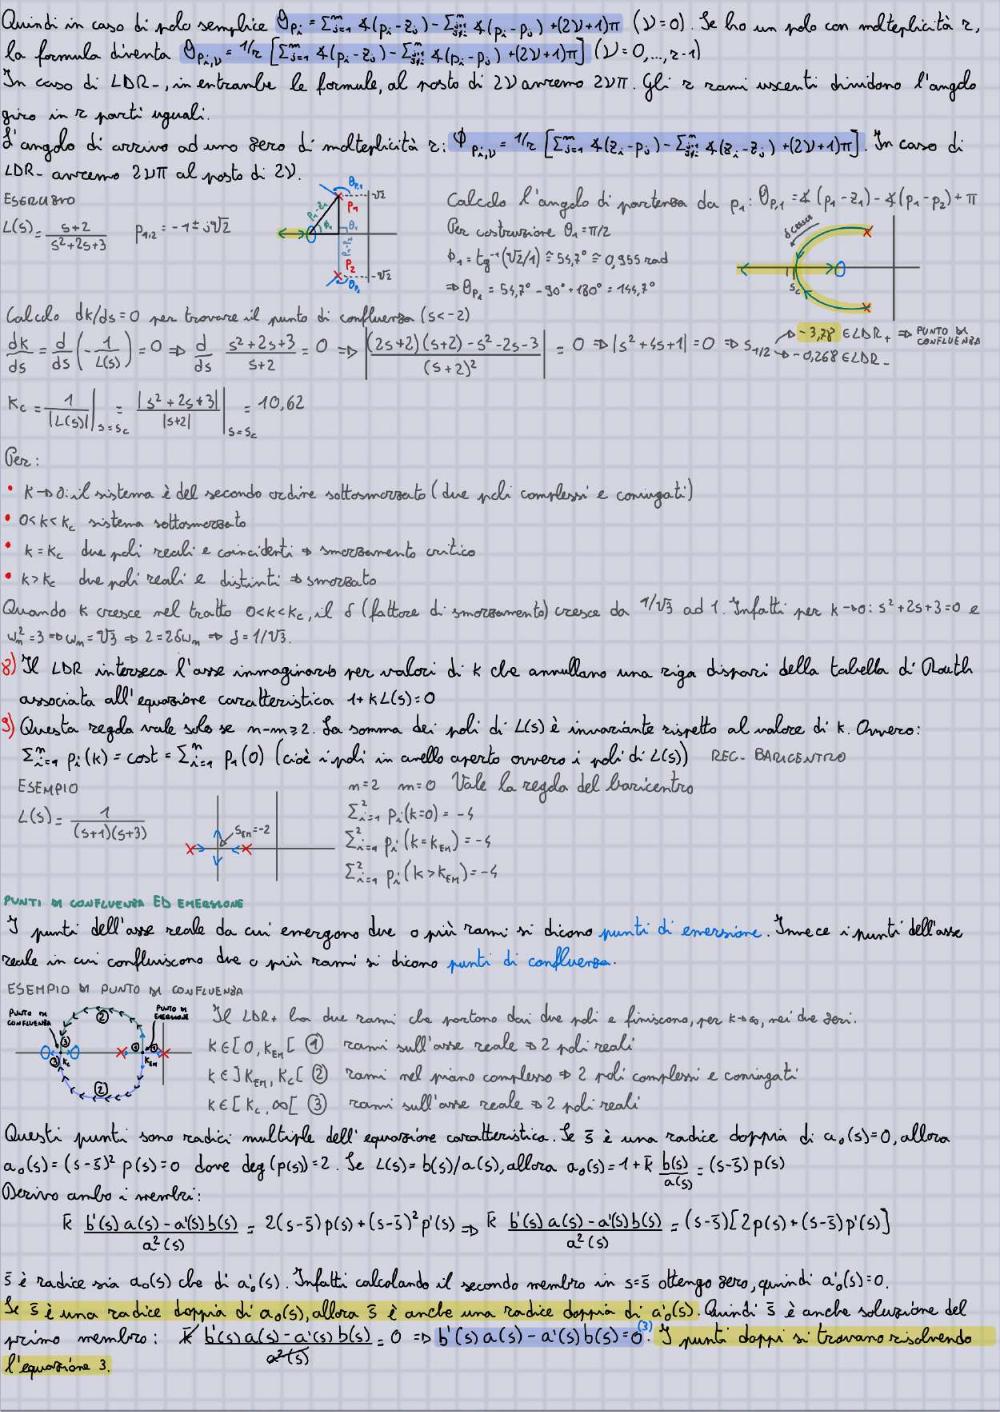 Quindi in caso di polo semplice θ_Pi = Σ^m_{j=1} ∡(p_i-z_j) - Σ^m_{j≠i} ∡(p_i-p_j) +(2ν+1)π (ν=0). Se ho un polo con molteplicità r,
la formula diventa θ_Pi,ν = 1/r [Σ^m_{j=1} ∡(p_i-z_j) - Σ^m_{j≠i} ∡(p_i-p_j) +(2ν+1)π] (ν=0,...,r-1)
In caso di LDR-, in entrambe le formule, al posto di 2ν avremo 2νπ. Gli r rami uscenti dividono l'angolo
giro in r parti uguali.
L'angolo di arrivo ad uno zero di molteplicità r: ϕ_Pi,ν = 1/r [Σ^m_{j=1} ∡(z_i-p_j) - Σ^m_{j≠i} ∡(z_i-z_j) +(2ν+1)π]. In caso di
LDR- avremo 2νπ al posto di 2ν.
ESERCIZIO
L(s) = (s+2)/(s²+2s+3) p_1,2 = -1 ± j√2
θ_P1 √2 P1 p1-z1 ϕ1 θ1 p1-p2 P2 -√2 θ_P2
Calcolo l'angolo di partenza da p1: θ_P,1 = ∡(p1-z1) - ∡(p1-p2) + π
Per costruzione θ1 = π/2
ϕ1 = tg⁻¹(√2/1) ≅ 54,7° ≅ 0,955 rad
⇒ θ_P1 = 54,7° - 90° + 180° = 144,7°
δ cresce
s_c
Calcolo dk/ds = 0 per trovare il punto di confluenza (s<-2)
dk/ds = d/ds (-1/L(s)) = 0 ⇒ d/ds (s²+2s+3)/(s+2) = 0 ⇒ |((2s+2)(s+2) - s² - 2s - 3)/(s+2)²| = 0 ⇒ |s²+4s+1| = 0 ⇒ s_1/2 → -3,78 ∈ LDR+ ⇒ PUNTO DI CONFLUENZA
→ -0,268 ∈ LDR-
K_c = 1/|L(s)| |_{s=s_c} = |s²+2s+3|/|s+2| |_{s=s_c} = 10,62
Per:
• K→0: il sistema è del secondo ordine sottosmorzato (due poli complessi e coniugati)
• 0<k<k_c sistema sottosmorzato
• k=k_c due poli reali e coincidenti ⇒ smorzamento critico
• k>k_c due poli reali e distinti ⇒ smorzato
Quando k cresce nel tratto 0<k<k_c, il δ (fattore di smorzamento) cresce da 1/√3 ad 1. Infatti per k→0: s²+2s+3=0 e
ω_n²=3 ⇒ ω_n=√3 ⇒ 2=2δω_n ⇒ δ=1/√3.
8) Il LDR interseca l'asse immaginario per valori di k che annullano una riga dispari della tabella di Routh
associata all'equazione caratteristica 1+KL(s)=0
9) Questa regola vale solo se n-m≥2. La somma dei poli di L(s) è invariante rispetto al valore di k. Ovvero:
Σ^m_{i=1} p_i(k) = cost = Σ^m_{i=1} p_1(0) (cioè i poli in anello aperto ovvero i poli di L(s)) REG. BARICENTRO
ESEMPIO
L(s) = 1/((s+1)(s+3))
s_EM=-2
n=2 m=0 Vale la regola del baricentro
Σ²_{i=1} p_i(k=0) = -4
Σ²_{i=1} p_i(k=k_EM) = -4
Σ²_{i=1} p_i(k>k_EM) = -4
PUNTI DI CONFLUENZA ED EMERSIONE
I punti dell'asse reale da cui emergono due o più rami si dicono punti di emersione. Invece i punti dell'asse
reale in cui confluiscono due o più rami si dicono punti di confluenza.
ESEMPIO DI PUNTO DI CONFLUENZA
PUNTO DI CONFLUENZA
PUNTO DI EMERSIONE
② ③ ③ K_c ① ① K_EM ②
Il LDR+ ha due rami che partono dai due poli e finiscono, per k→∞, nei due zeri:
K∈[0,K_EM[ ① rami sull'asse reale ⇒ 2 poli reali
K∈]K_EM,K_c[ ② rami nel piano complesso ⇒ 2 poli complessi e coniugati
K∈[K_c,∞[ ③ rami sull'asse reale ⇒ 2 poli reali
Questi punti sono radici multiple dell'equazione caratteristica. Se s̄ è una radice doppia di a₀(s)=0, allora
a₀(s)=(s-s̄)² p(s)=0 dove deg(p(s))=2. Se L(s)=b(s)/a(s), allora a₀(s)=1+k̄ b(s)/a(s)=(s-s̄)p(s)
Derivo ambo i membri:
k̄ (b'(s)a(s)-a'(s)b(s))/a²(s) = 2(s-s̄)p(s)+(s-s̄)²p'(s) ⇒ k̄ (b'(s)a(s)-a'(s)b(s))/a²(s) = (s-s̄)[2p(s)+(s-s̄)p'(s)]
s̄ è radice sia a₀(s) che di a'₀(s). Infatti calcolando il secondo membro in s=s̄ ottengo zero, quindi a'₀(s)=0.
Se s̄ è una radice doppia di a₀(s), allora s̄ è anche una radice doppia di a'₀(s). Quindi s̄ è anche soluzione del
primo membro: k̄ (b'(s)a(s)-a'(s)b(s))/a²(s) = 0 ⇒ b'(s)a(s)-a'(s)b(s)=0 (3). I punti doppi si trovano risolvendo
l'equazione 3.